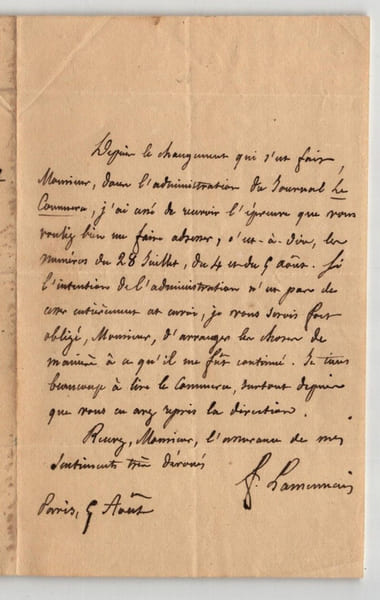 Depuis le changement qui s'est fait,
Monsieur, dans l'administration du Journal Le
Commerce, j'ai cessé de recevoir l'épreuve que vous
vouliez bien me faire adresser, c'est-à-dire, les
numéros du 28 Juillet, du 4 et du 5 août. Si
l'intention de l'administration n'est pas de
cesser entièrement cet envoi, je vous serois fort
obligé, Monsieur, d'arranger les choses de
manière à ce qu'il me fût continué. Je tiens
beaucoup à lire le Commerce, surtout depuis
que vous en avez repris la direction.
Recevez, Monsieur, l'assurance de mes
sentiments très dévoués
F. Lamennais
Paris, 5 Août